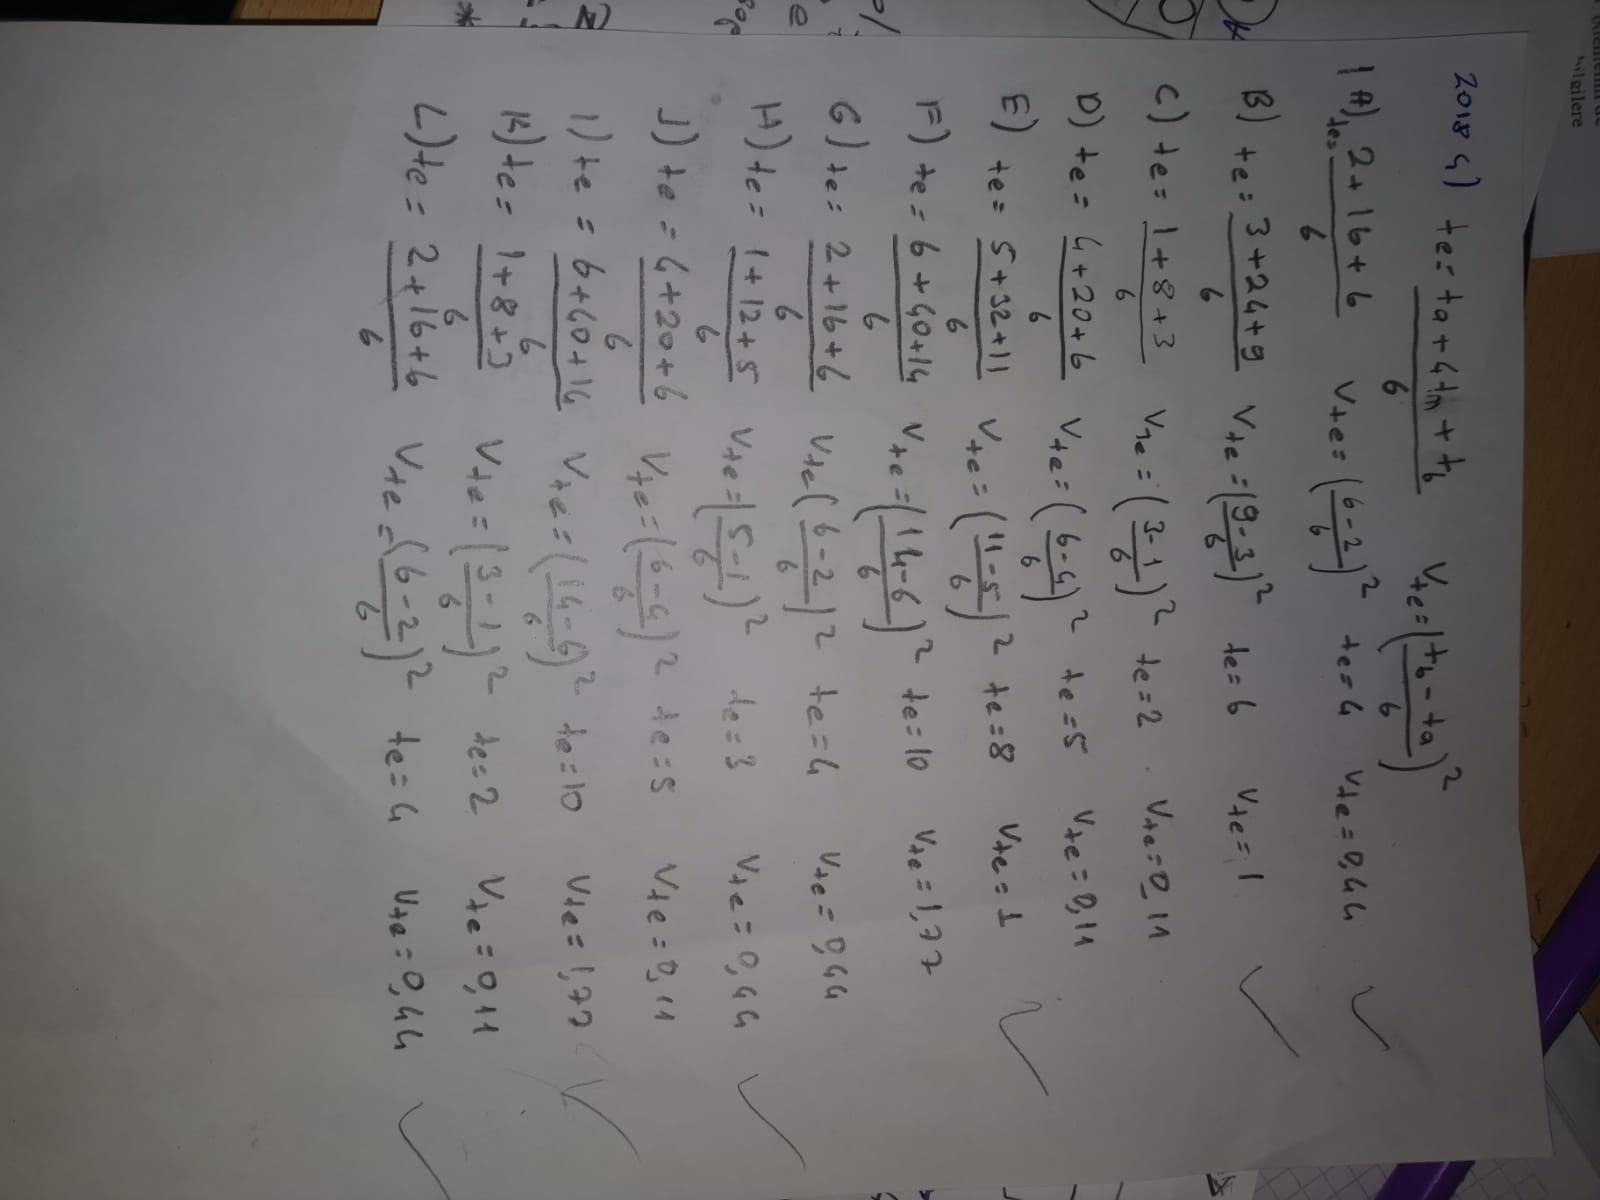 ödemenin de
bilgilere
2018 4) te = ta + 4tm + tb / 6 Vte = (tb - ta / 6)²
1 A) te = 2 + 16 + 6 / 6 Vte = (6-2 / 6)² te = 4 Vte = 0,44 ✓
B) te = 3 + 24 + 9 / 6 Vte = (9-3 / 6)² te = 6 Vte = 1 ✓
C) te = 1 + 8 + 3 / 6 Vte = (3-1 / 6)² te = 2 Vte = 0,11
D) te = 4 + 20 + 6 / 6 Vte = (6-4 / 6)² te = 5 Vte = 0,11
E) te = 5 + 32 + 11 / 6 Vte = (11-5 / 6)² te = 8 Vte = 1 ✓
F) te = 6 + 40 + 14 / 6 Vte = (14-6 / 6)² te = 10 Vte = 1,77
G) te = 2 + 16 + 6 / 6 Vte (6-2 / 6)² te = 4 Vte = 0,44
H) te = 1 + 12 + 5 / 6 Vte = (5-1 / 6)² te = 3 Vte = 0,44 ✓
J) te = 4 + 20 + 6 / 6 Vte = (6-4 / 6)² te = 5 Vte = 0,11
I) te = 6 + 40 + 14 / 6 Vte = (14-6 / 6)² te = 10 Vte = 1,77 ✓
K) te = 1 + 8 + 3 / 6 Vte = (3-1 / 6)² te = 2 Vte = 0,11
L) te = 2 + 16 + 6 / 6 Vte = (6-2 / 6)² te = 4 Vte = 0,44 ✓